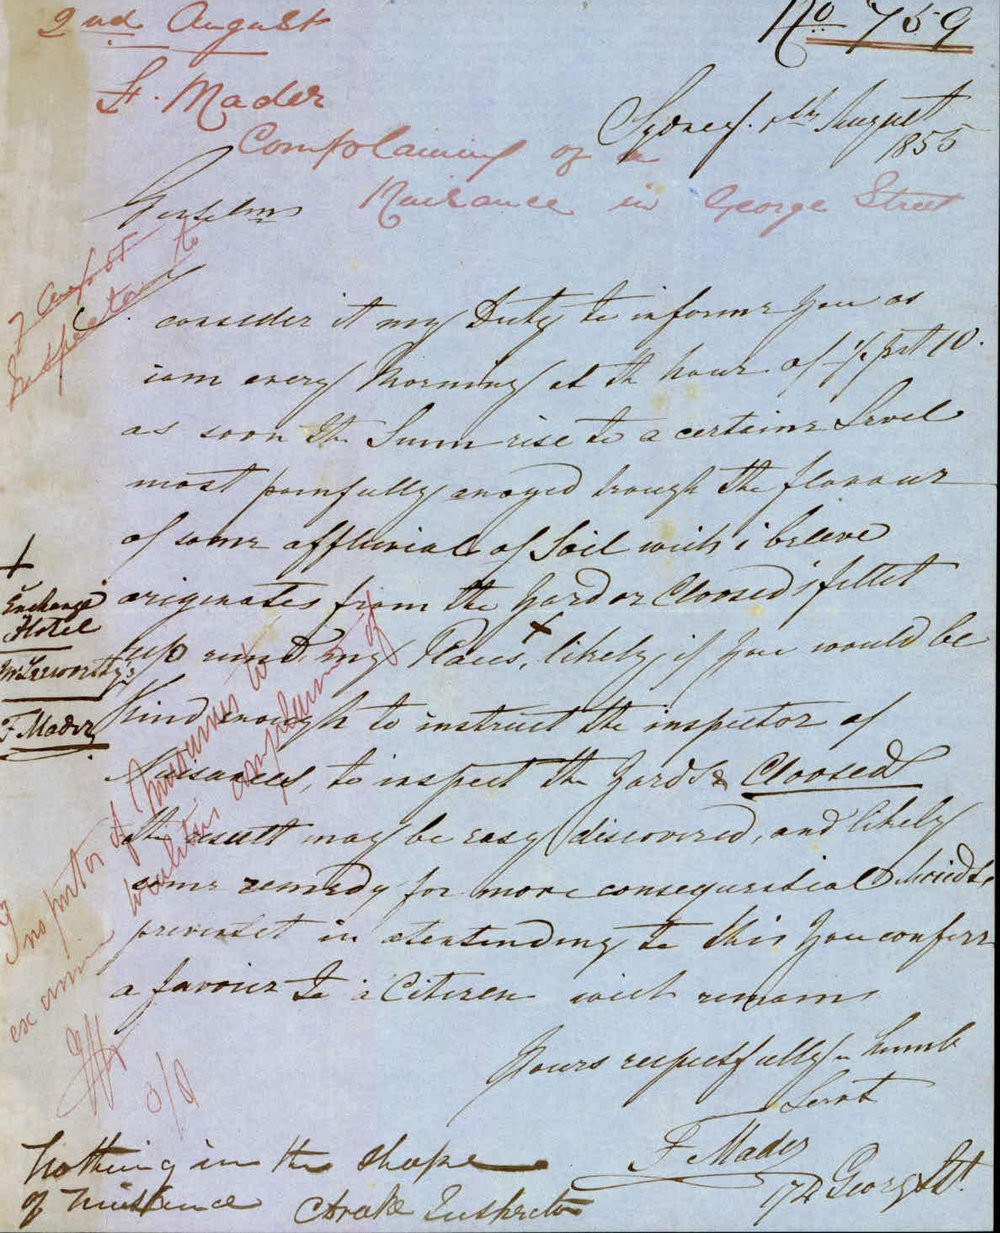 2nd August
No 759
F. Mader
Complaining of a
Nuisance in George Street
Sydney. August
1855
Gentelmn
7 Augt 55
Inspector to
I
consider it my Duty to informe you as
iam every Morning at th hour of ½ past 10.
as soon th Sunn rise to a certaine Level
most painfully anoyed trough the flavour
of some affluvial of Soil wich i beleve
originates from the Yard or Cloosed's fittet
up rund my Place, likely if you would be
Kind enough to instruct the inspector of
Nuisances, to inspect the Yards & Closeds
the result may be easy discovered, and likely
some remedy for more consequential
prevented in atentending to this You conferr
a favour to a Citizen wich remains
Yours respectfully humb
Servt
F Mader
174 George St.
+
Exchange
Hotel
F. Mader
Inspector of Nuisances to
examine localities complained of
Nothing in the Shape
of Nuisance C Drake Inspector